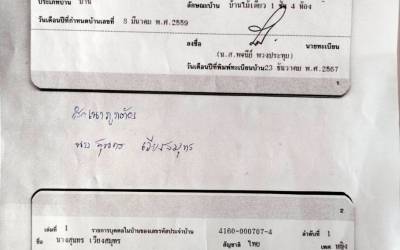 ประเภทบ้าน บ้าน ลักษณะบ้าน บ้านไม้เดี่ยว 1 ชั้น 4 ห้อง
วันเดือนปีที่กำหนดบ้านเลขที่ 8 มีนาคม พ.ศ.2559
ลงชื่อ นายทะเบียน
(น.ส.พจนีย์ พวงประทุม)
วันเดือนปีที่พิมพ์ทะเบียนบ้าน 23 ธันวาคม พ.ศ.2567
1
สำเนาถูกต้อง
นาง สุนทร เวียงสมุทร
2
เล่มที่ 1 รายการบุคคลในบ้านของเลขรหัสประจำบ้าน 4160-000707-4 ลำดับที่ 1
ชื่อ นางสุนทร เวียงสมุทร สัญชาติ ไทย เพศ หญิง